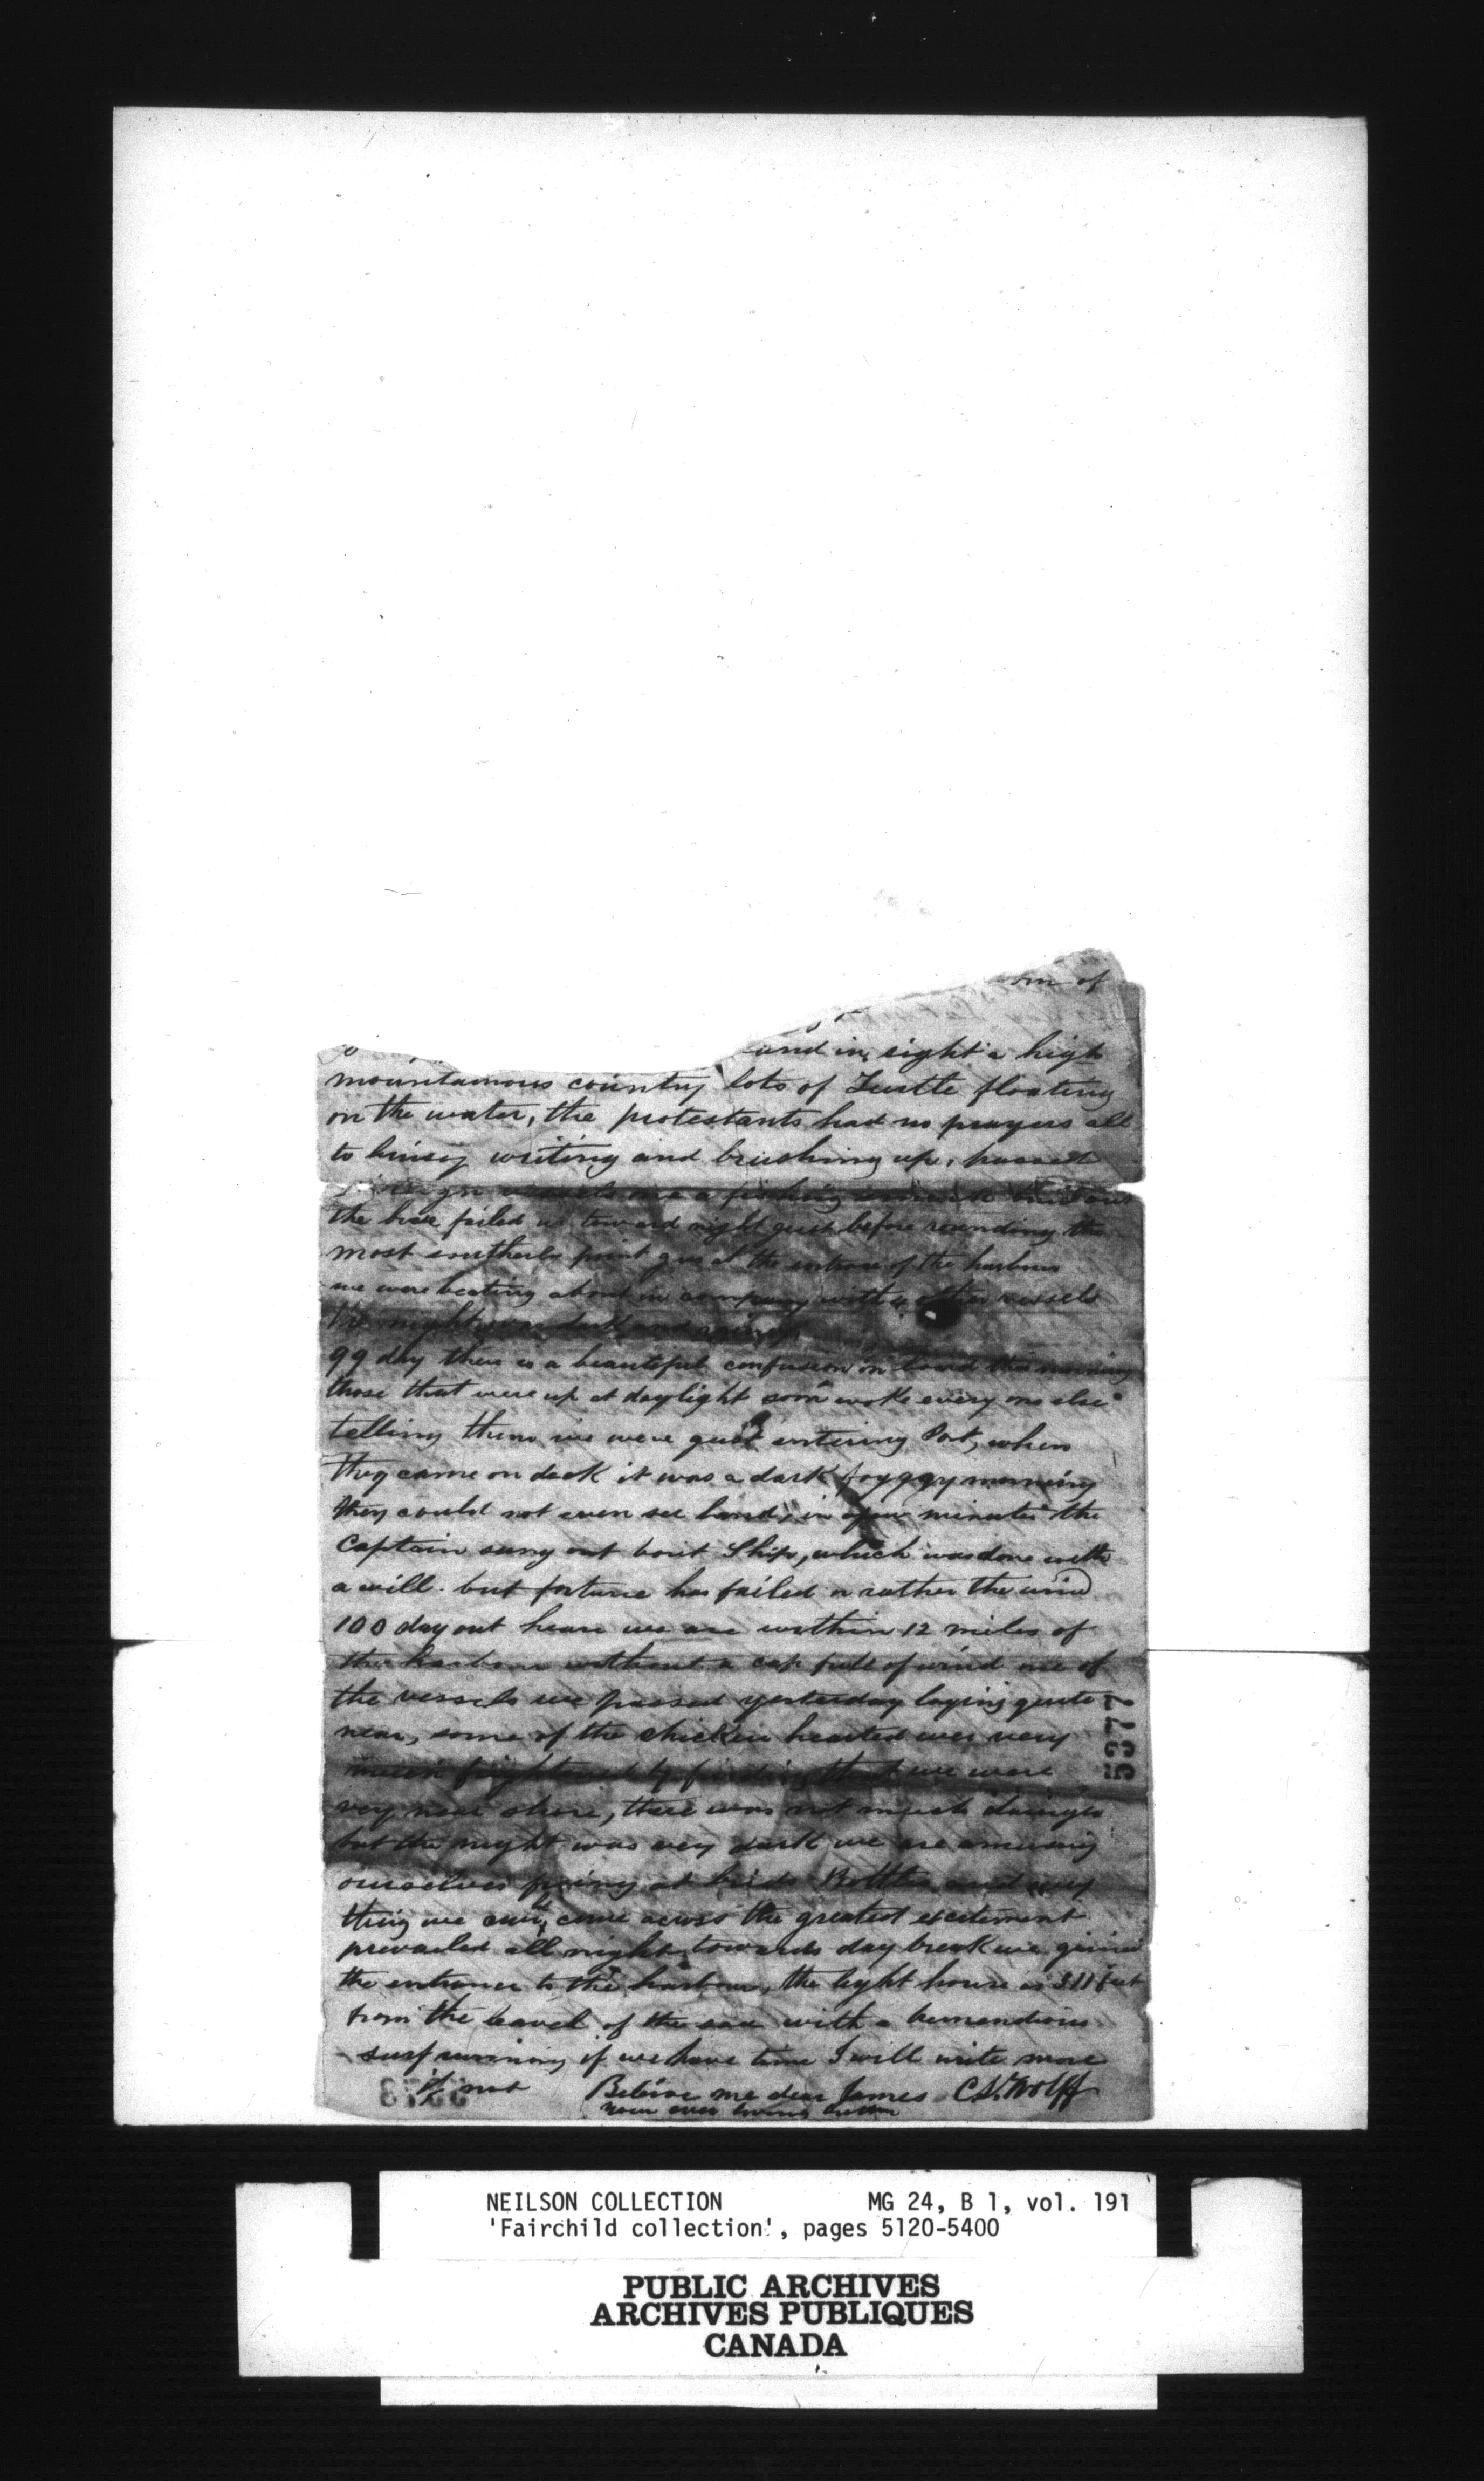 of
and in sight a high
mountainous country lots of Turtle floating
on the water, the protestants had no prayers all
to buissy writing and brushing up, passed
vessels one a fishing
the bree failed us toward night just before rounding the
most southerly point gus at the entrace of the harbour
we were beating about in company with 4 other vessels
the night was dark and
99 day there is a beautiful confusion on board this morning
those that were up at daylight soon woke every one else
telling them we were just entering Port, when
they came on deck it was a dark foyggy morning
they could not even see land, in a few minutes the
Captain sung out bout Ship, which was done with
a will. but fortune has failed or rather the wind
100 day out hear we are within 12 miles of
the harbour without a cap full of wind one of
the vessels we passed yesterday laying quite
near, some of the chicken hearted wer very
much frightened by finding that we were
very near shore, there was not much dainger
but the night was very dark we are amusing
ourselves firing at birds Bottles and every
thing we can come across the greatest excitement
prevailed all night towards day break we gained
the entrance to the harbour, the light house is 311 feet
from the leavel of the sea with a tremendious
surf running if we have time I will write more
if not Beleive me dear James C. S. Wolff
your ever loving brother
5377
NEILSON COLLECTION MG 24, B 1, vol. 191
'Fairchild collection', pages 5120-5400
PUBLIC ARCHIVES
ARCHIVES PUBLIQUES
CANADA